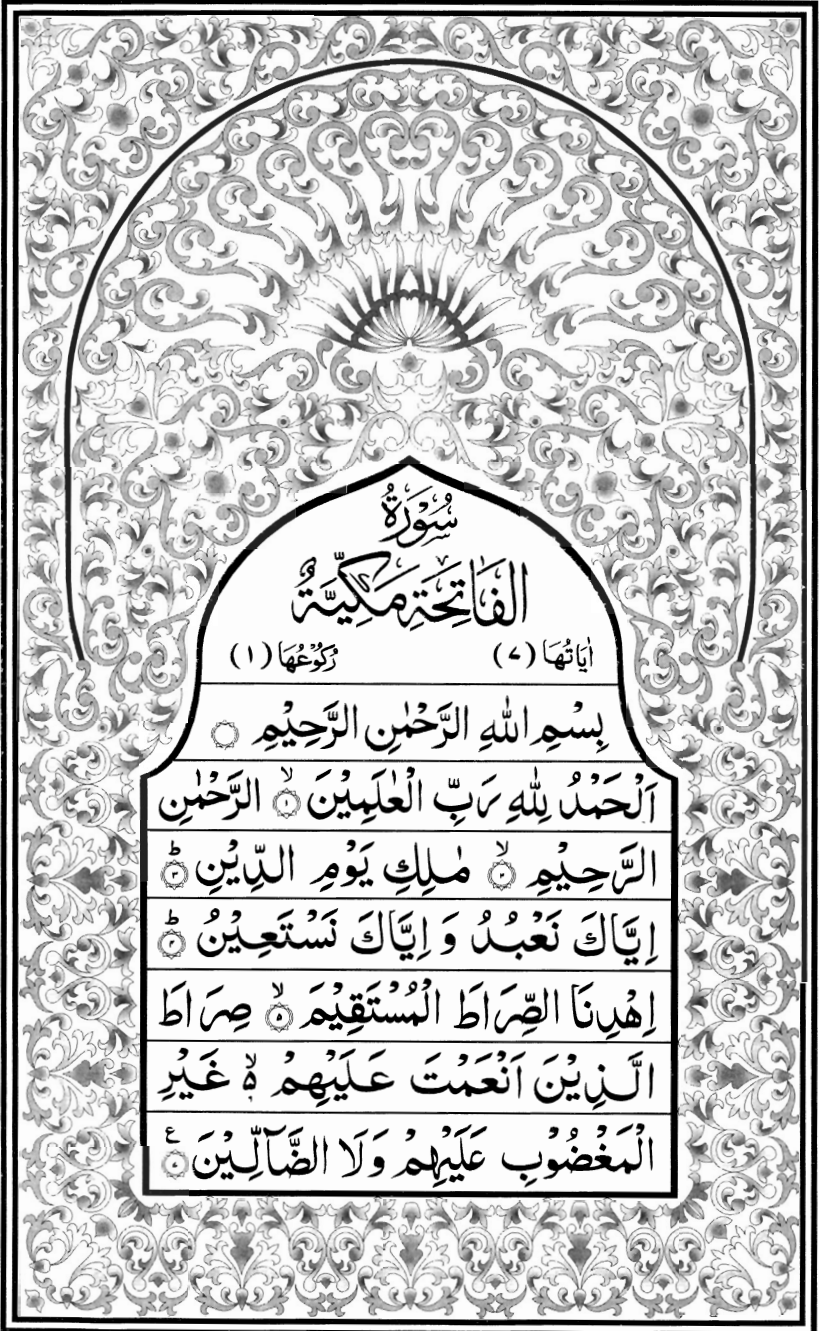 سُوْرَةُ
الْفَاتِحَةِ مَكِّيَّةٌ
اٰيَاتُهَا (٧) رُكُوْعُهَا (١)
بِسْمِ اللّٰهِ الرَّحْمٰنِ الرَّحِيْمِ ۝
اَلْحَمْدُ لِلّٰهِ رَبِّ الْعٰلَمِيْنَ ۙ۝١ الرَّحْمٰنِ
الرَّحِيْمِ ۙ۝٢ مٰلِكِ يَوْمِ الدِّيْنِ ؕ۝٣
اِيَّاكَ نَعْبُدُ وَ اِيَّاكَ نَسْتَعِيْنُ ؕ۝٤
اِهْدِنَا الصِّرَاطَ الْمُسْتَقِيْمَ ۙ۝٥ صِرَاطَ
الَّذِيْنَ اَنْعَمْتَ عَلَيْهِمْ ۙ۬ۦ غَيْرِ
الْمَغْضُوْبِ عَلَيْهِمْ وَلَا الضَّآلِّيْنَ ۧ۝٧